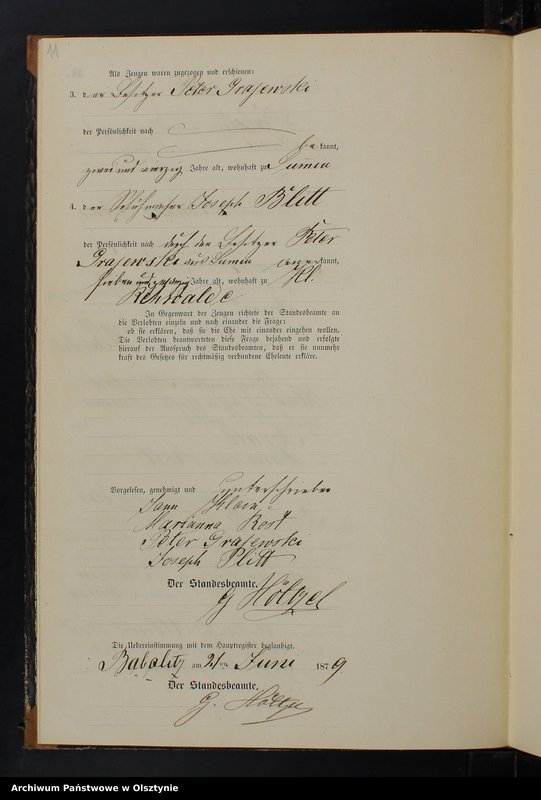 11
Als Zeugen waren zugezogen und erschienen:
3. der Besitzer Peter Grajewski
der Persönlichkeit nach
be kannt,
zwei und vierzig Jahre alt, wohnhaft zu Sumen
4. der Joseph Blitt
der Persönlichkeit nach durch den Besitzer Peter
Grajewski aus Sumen anerkannt,
sieben und Jahre alt, wohnhaft zu Kl.
Rehwalde
In Gegenwart der Zeugen richtete der Standesbeamte an
die Verlobten einzeln und nach einander die Frage:
ob sie erklären, daß sie die Ehe mit einander eingehen wollen.
Die Verlobten beantworteten diese Frage bejahend und erfolgte
hierauf der Ausspruch des Standesbeamten, daß er sie nunmehr
kraft des Gesetzes für rechtmäßig verbundene Eheleute erkläre.
Vorgelesen, genehmigt und unterschrieben
Jann Klein
Marianna Rost
Peter Grajewski
Joseph Plitt
Der Standesbeamte.
G Höltzel
Die Uebereinstimmung mit dem Hauptregister beglaubigt.
Babalitz am 21ten Juni 1879.
Der Standesbeamte.
G. Höltzel
Archiwum Państwowe w Olsztynie